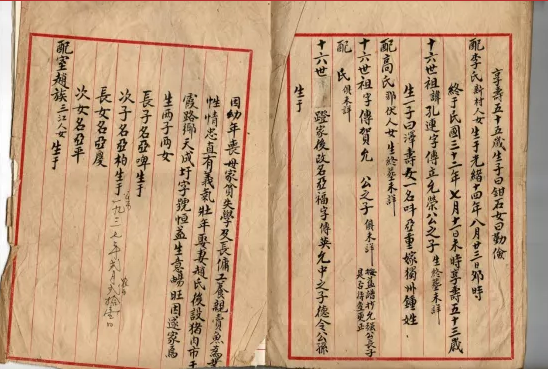 享壽五十五歲生子曰鉗石女曰勤儉
配李氏新村人女生于光緒十四年八月廿三日卯時
終于民國三十二年七月十二日未時享壽五十三歲
十六世祖諱孔連字傳立允榮公之子生終塟未詳
生一子曰澤壽女一名呌亞重嫁獨州鍾姓
配高氏 伏人女生終塟未詳
十六世祖字傳賀允 公之子俱未詳
配 氏俱未詳
十六世 證家後改名亞福字傳英允中之子德令公孫
生于
因幼年喪母家貧失學及長傭工養親賣魚為
性情忠直有義氣壯年娶妻趙氏後設豬肉市于
霞路鄉天成圩字號恒益生意暢旺因遂家焉
生两子两女
長子名亞啤生于
次子名亞柏生于一九三七年
長女名亞慶
次女名亞平
配室趙族三江人女生于